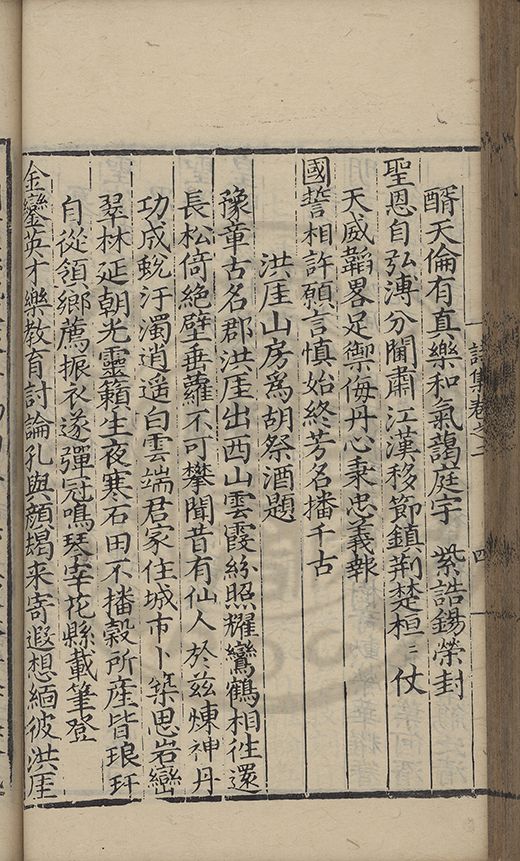 醑天倫有直樂和氣藹庭宇　紫誥錫榮封
聖恩自弘溥分閫肅江漢移節鎮荆楚桓〻仗
天威韜畧足禦侮丹心秉忠義報
國誓相許願言慎始終芳名播千古
洪厓山房爲胡祭酒題
豫章古名郡洪厓出西山雲霞紛照耀鸞鶴相徃還
長松倚絶壁垂蘿不可攀聞昔有仙人於兹煉神丹
功成蛻汙濁逍遥白雲端君家住城市卜築思岩巒
翠林延朝光靈籟生夜寒石田不播穀所産皆琅玕
自從領鄉薦振衣遂彈冠鳴琴宰花縣載筆登
金鑾英才樂教育討論孔與顔朅来寄遐想緬彼洪厓
詩集卷之二
四